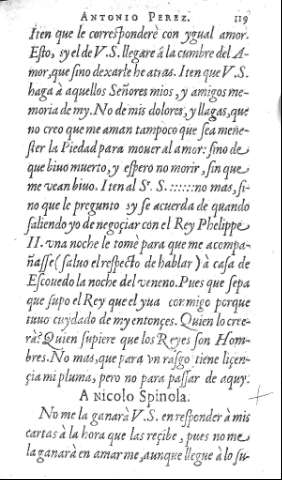 ANTONIO PEREZ. 119
Iten que le correspondere con ygual amor.
Esto, sy el de V.S. llegare á la cumbre del A-
mor, que sino dexarle he atras. Iten que V.S.
haga à aquellos Señores mios, y amigos me-
moria de my. No de mis dolores, y llagas, que
no creo que me aman tampoco que sea mene-
ster la Piedad para mouer al amor: sino de
que biuo muerto, y espero no morir, sin que
me vean biuo. Iten al Sr. S. :::::: no mas, si-
no que le pregunto sy se acuerda de quando
saliendo yo de negoçiar con el Rey Phelippe
II. vna noche le tomè para que me acompa-
ñasse (saluo el respecto de hablar) à casa de
Escouedo la noche del veneno. Pues que sepa
que supo el Rey que el yua conmigo porque
tuuo cuydado de my entonçes. Quien lo cree-
rà? Quien supiere que los Reyes son Hom-
bres. No mas, que para vn rasgo tiene liçen-
çia mi pluma, pero no para passar de aquy.
A NICOLO SPINOLA.
No me la ganarà V.S. en responder à mis
cartas à la hora que las reçibe, pues no me
la ganarà en amarme, aunque llegue à lo su-